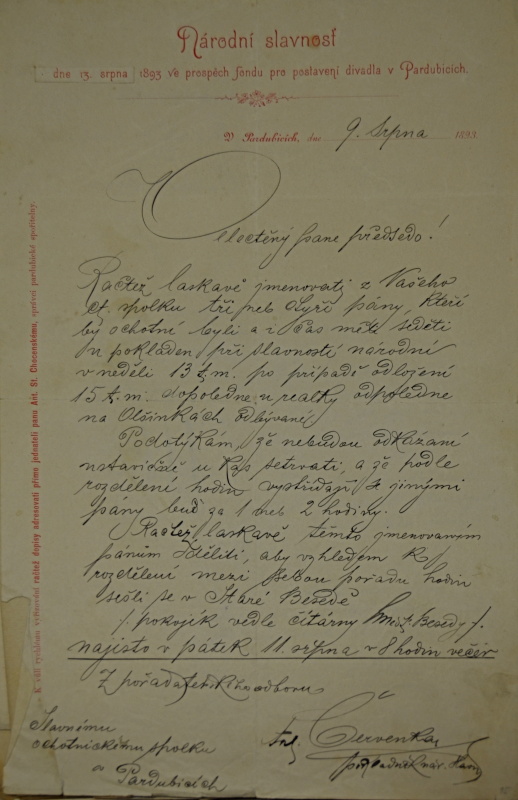 Národní slavnosť
dne 13. srpna 1893 ve prospěch fondu pro postavení divadla v Pardubicích.
V Pardubicích, dne 9. Srpna 1893.
K vůli rychlému vyřizování račtež dopisy adresovati přímo jednateli panu Ant. St. Chocenskému, správci pardubické spořitelny.
Velectěný pane předsedo!
Račtež laskavě jmenovati z Vašeho
ct. spolku tři neb čtyři pány, kteří
by ochotni byli a v čas měli seděti
u pokladen při slavnosti národní
v neděli 13 t.m. po případě odložení
15 t.m. dopoledne u realky odpoledne
na Olšinkách odbývané
Podotýkám, že nebudou odkázáni
ustavičně u kas setrvati, a že podle
rozdělení hodin vystřídají se jinými
pány buď za 1 neb 2 hodiny.
Račtež laskavě těmto jmenovaným
pánům sděliti, aby vzhledem k
rozdělení mezi sebou pořadu hodin
sešli se v Staré Besedě
/: pokojík vedle čítárny Besedy :/
najisto v pátek 11. srpna v 8 hodin večer
Z pořadatelského odboru
Slavnému
ochotnickému spolku
v Pardubicích
Červenka
pokladník nár. slav.